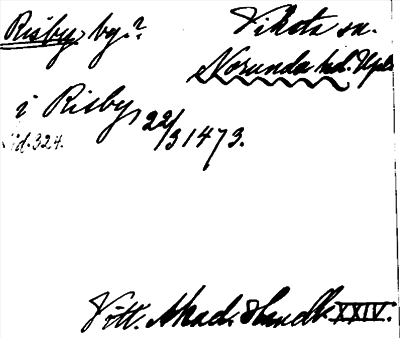 Risby, by? Viksta sn.
Norunda hd. Upl.
i Risby 22/3 1473.
sid. 324.
Vitt. Akad. Handl. XXIV.